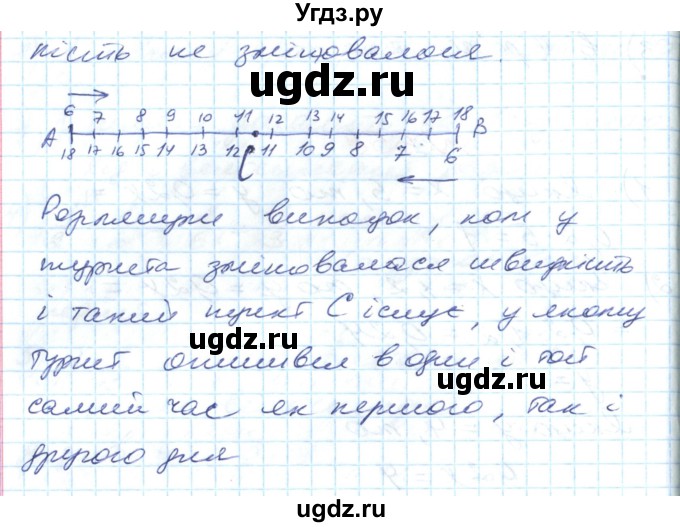 Угдз.ру
ugdz.ru
кість не змінювалася.
6 7 8 9 10 11 12 13 14 15 16 17 18
A B
18 17 16 15 14 13 12 11 10 9 8 7 6
C
ugdz.ru
Розглянути випадок, коли у
туриста змінювалася швидкість
ugdz.ru
і такий пункт С існує, у якому
турист опинився в один і той
ugdz.ru
самий час як першого, так і
другого дня
ugdz.ru
ugdz.ru